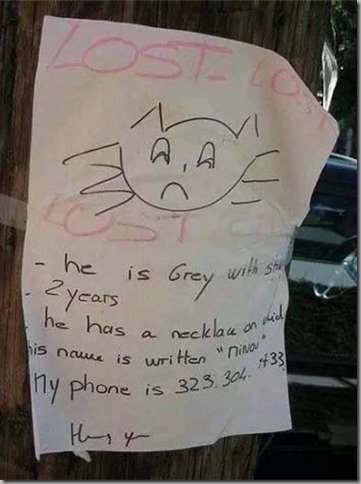 LOST - LOST
LOST
- he is Grey with
- 2 years
he has a necklace on
his name is written "MINOU"
My phone is 323.304. 433